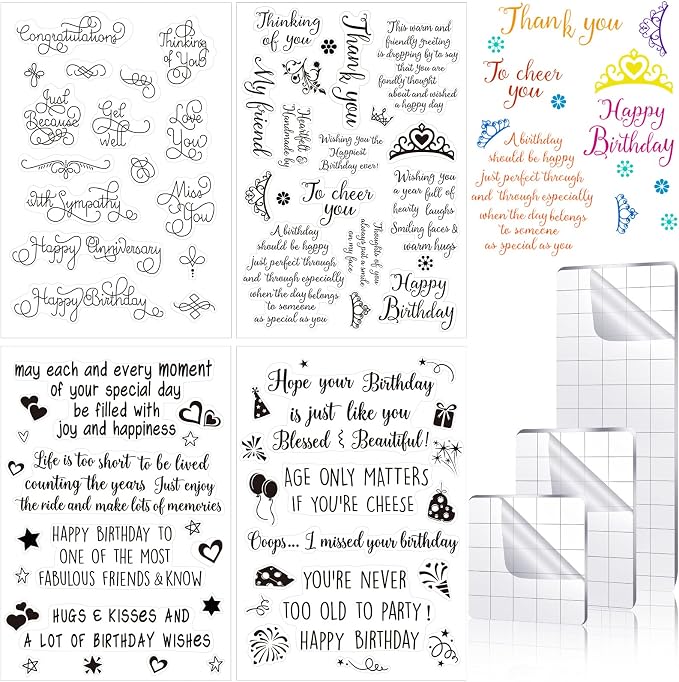 Congratulations
Thinking
of You
Just
Because
Get
well
Love
You
with Sympathy
Miss
You
Happy Anniversary
Happy Birthday
Thinking
of you
My friend
Thank
you
Heartfelt &
Handmade by
This warm and
friendly greeting
is dropping by to say
that you are
fondly thought
about and wished
a happy day
Wishing you the
Happiest
Birthday ever!
To cheer
you
Wishing you
a year full of
hearty laughs
Smiling faces &
warm hugs
A birthday
should be happy
just perfect through
and through especially
when the day belongs
to someone
as special as you
Thoughts of you
always put a smile
on my face
Happy
Birthday
Thank you
To cheer
you
Happy
Birthday
A birthday
should be happy
just perfect through
and through especially
when the day belongs
to someone
as special as you
may each and every moment
of your special day
be filled with
joy and happiness
Life is too short to be lived
counting the years Just enjoy
the ride and make lots of memories
HAPPY BIRTHDAY TO
ONE OF THE MOST
FABULOUS FRIENDS & KNOW
HUGS & KISSES AND
A LOT OF BIRTHDAY WISHES
Hope your Birthday
is just like you
Blessed & Beautiful!
AGE ONLY MATTERS
IF YOU'RE CHEESE
Oops... I missed your birthday
YOU'RE NEVER
TOO OLD TO PARTY!
HAPPY BIRTHDAY